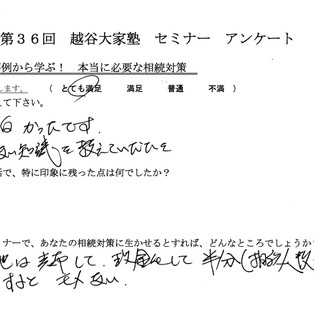 第３６回　越谷大家塾　セミナー　アンケート
事例から学ぶ！　本当に必要な相続対策
します。　（　とても満足　　満足　　普通　　不満　）
えて下さい。
白かったです.
知識を教えていただき
話で、特に印象に残った点は何でしたか？
ミナーで、あなたの相続対策に生かせるとすれば、どんなところでしょうか
地は 売却して. して 半分(相続人
すると モメない.